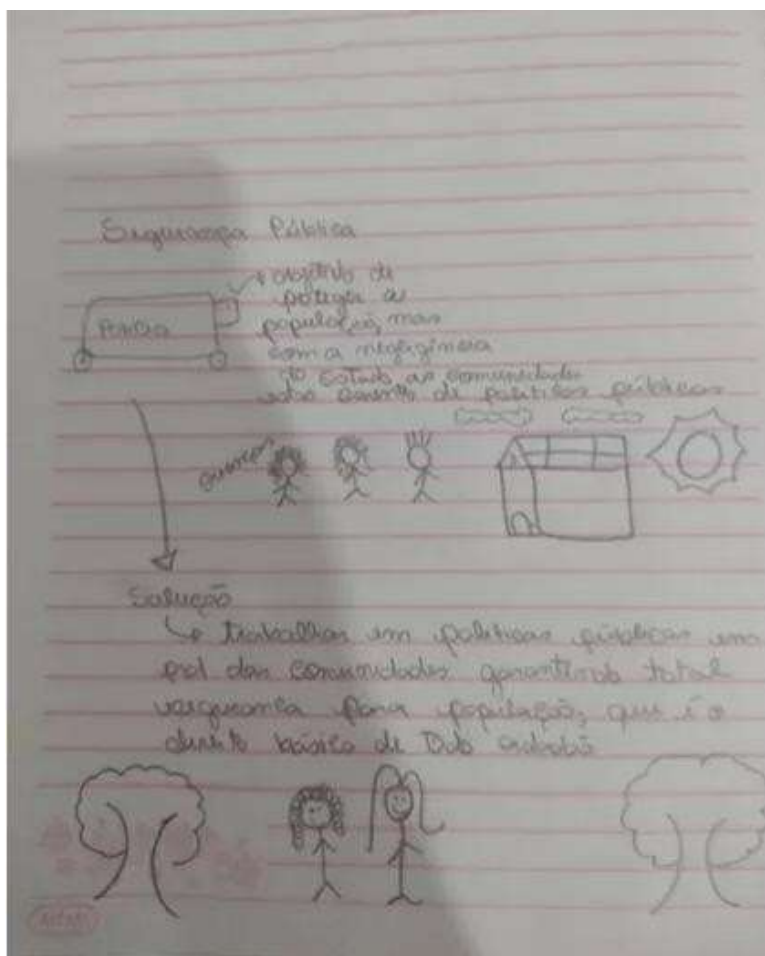 Segurança Pública
objetivo de
proteger a
Polícia
população, mas
com a negligência
do Estado as comunidades
de politicas públicas
crianças
Solução
Trabalhar em politicas públicas em
prol das comunidades garantindo total
segurança para população, que é o
direito básico de cidadão